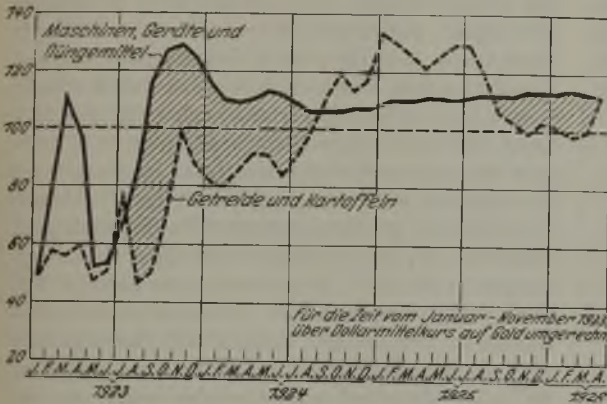 140
120
100
80
60
40
20
Maschinen, Geräte und
Düngemittel
Getreide und Kartoffeln
Für die Zeit vom Januar - November 1923
über Dollarmittelkurs auf Gold umgerechn
J. F. M. A. M. J. J. A. S. O. N. D. J. F. M. A. M. J. J. A. S. O. N. D. J. F. M. A. M. J. J. A. S. O. N. D. J. F. M. A.
1923 1924 1925 1926